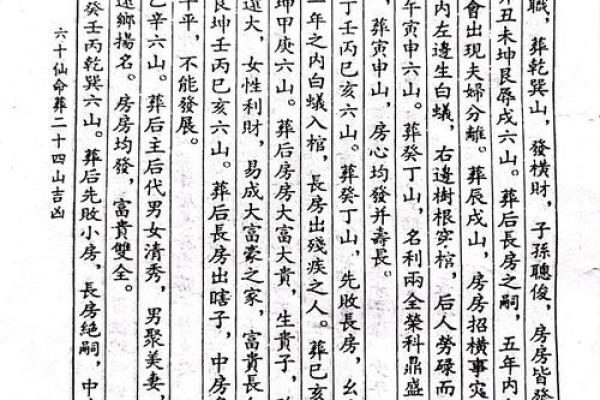 職，葬乾巽山，發橫財，子孫聰俊，房房皆發
丑未坤艮辰戌六山。葬后長房之嗣，五年內
會出現夫婦分離。葬辰戌山，房房招橫事災
內左邊生白蟻，右邊樹根穿棺，后人勞碌而
午寅申六山。葬癸丁山，名利兩全榮科鼎盛
，葬寅申山，房心均發并壽長。
丁壬丙巳亥六山。葬癸丁山，先敗長房，幺
年之內白蟻入棺，長房出殘疾之人。葬巳亥
坤甲庚六山。葬后房房大富大貴，生貴子，
遠大，女性利財，易成大富家之家，富貴長
艮坤壬丙巳亥六山。葬后長房出瞎子，中房
平平，不能發展。
乙辛六山。葬后主后代男女清秀，男聚美妻，
遠鄉揚名。房房均發，富貴雙全。
癸壬丙乾巽六山。葬后先敗小房，長房絕嗣，中
六十仙命葬二十四山吉凶